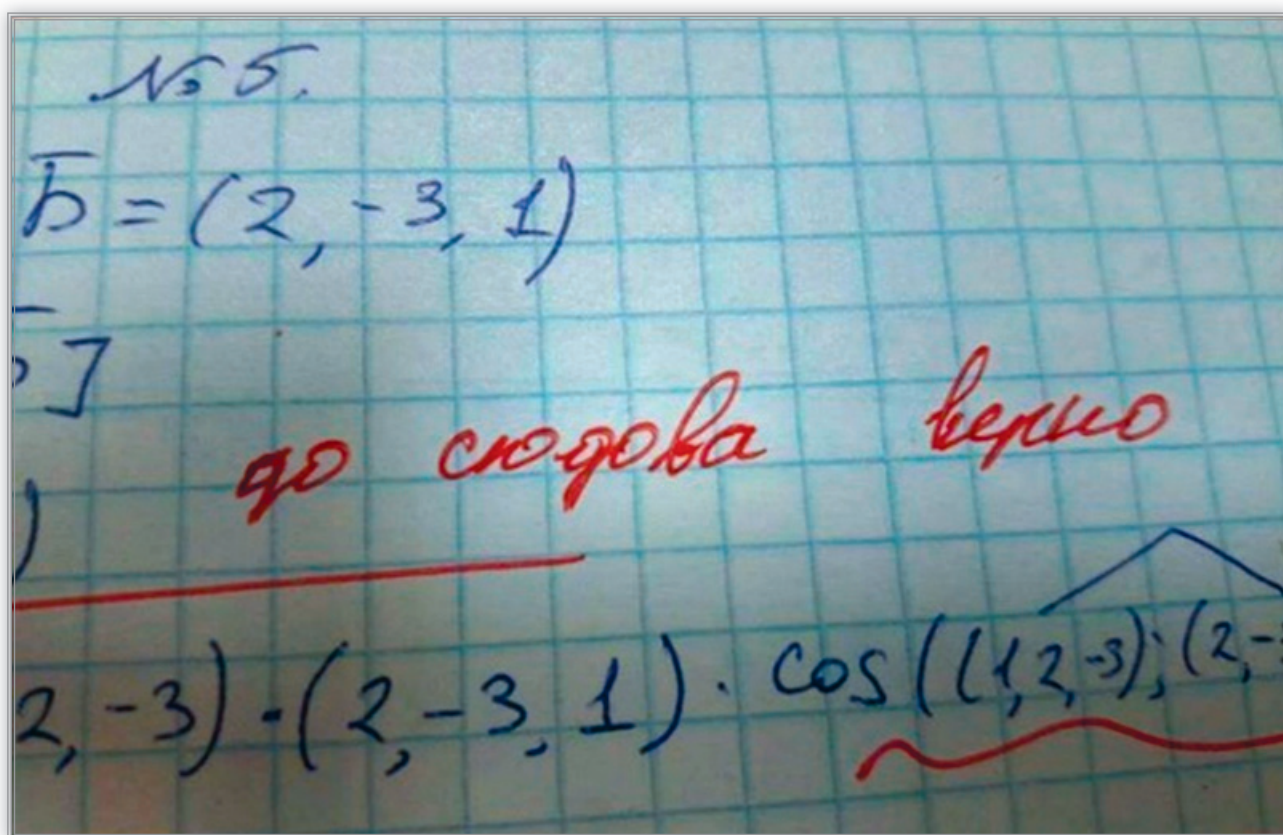 № 5.
b̅ = (2, -3, 1)
]
до сюдова верно
)
2, -3) · (2, -3, 1) · cos((1,2,-3); (2,-